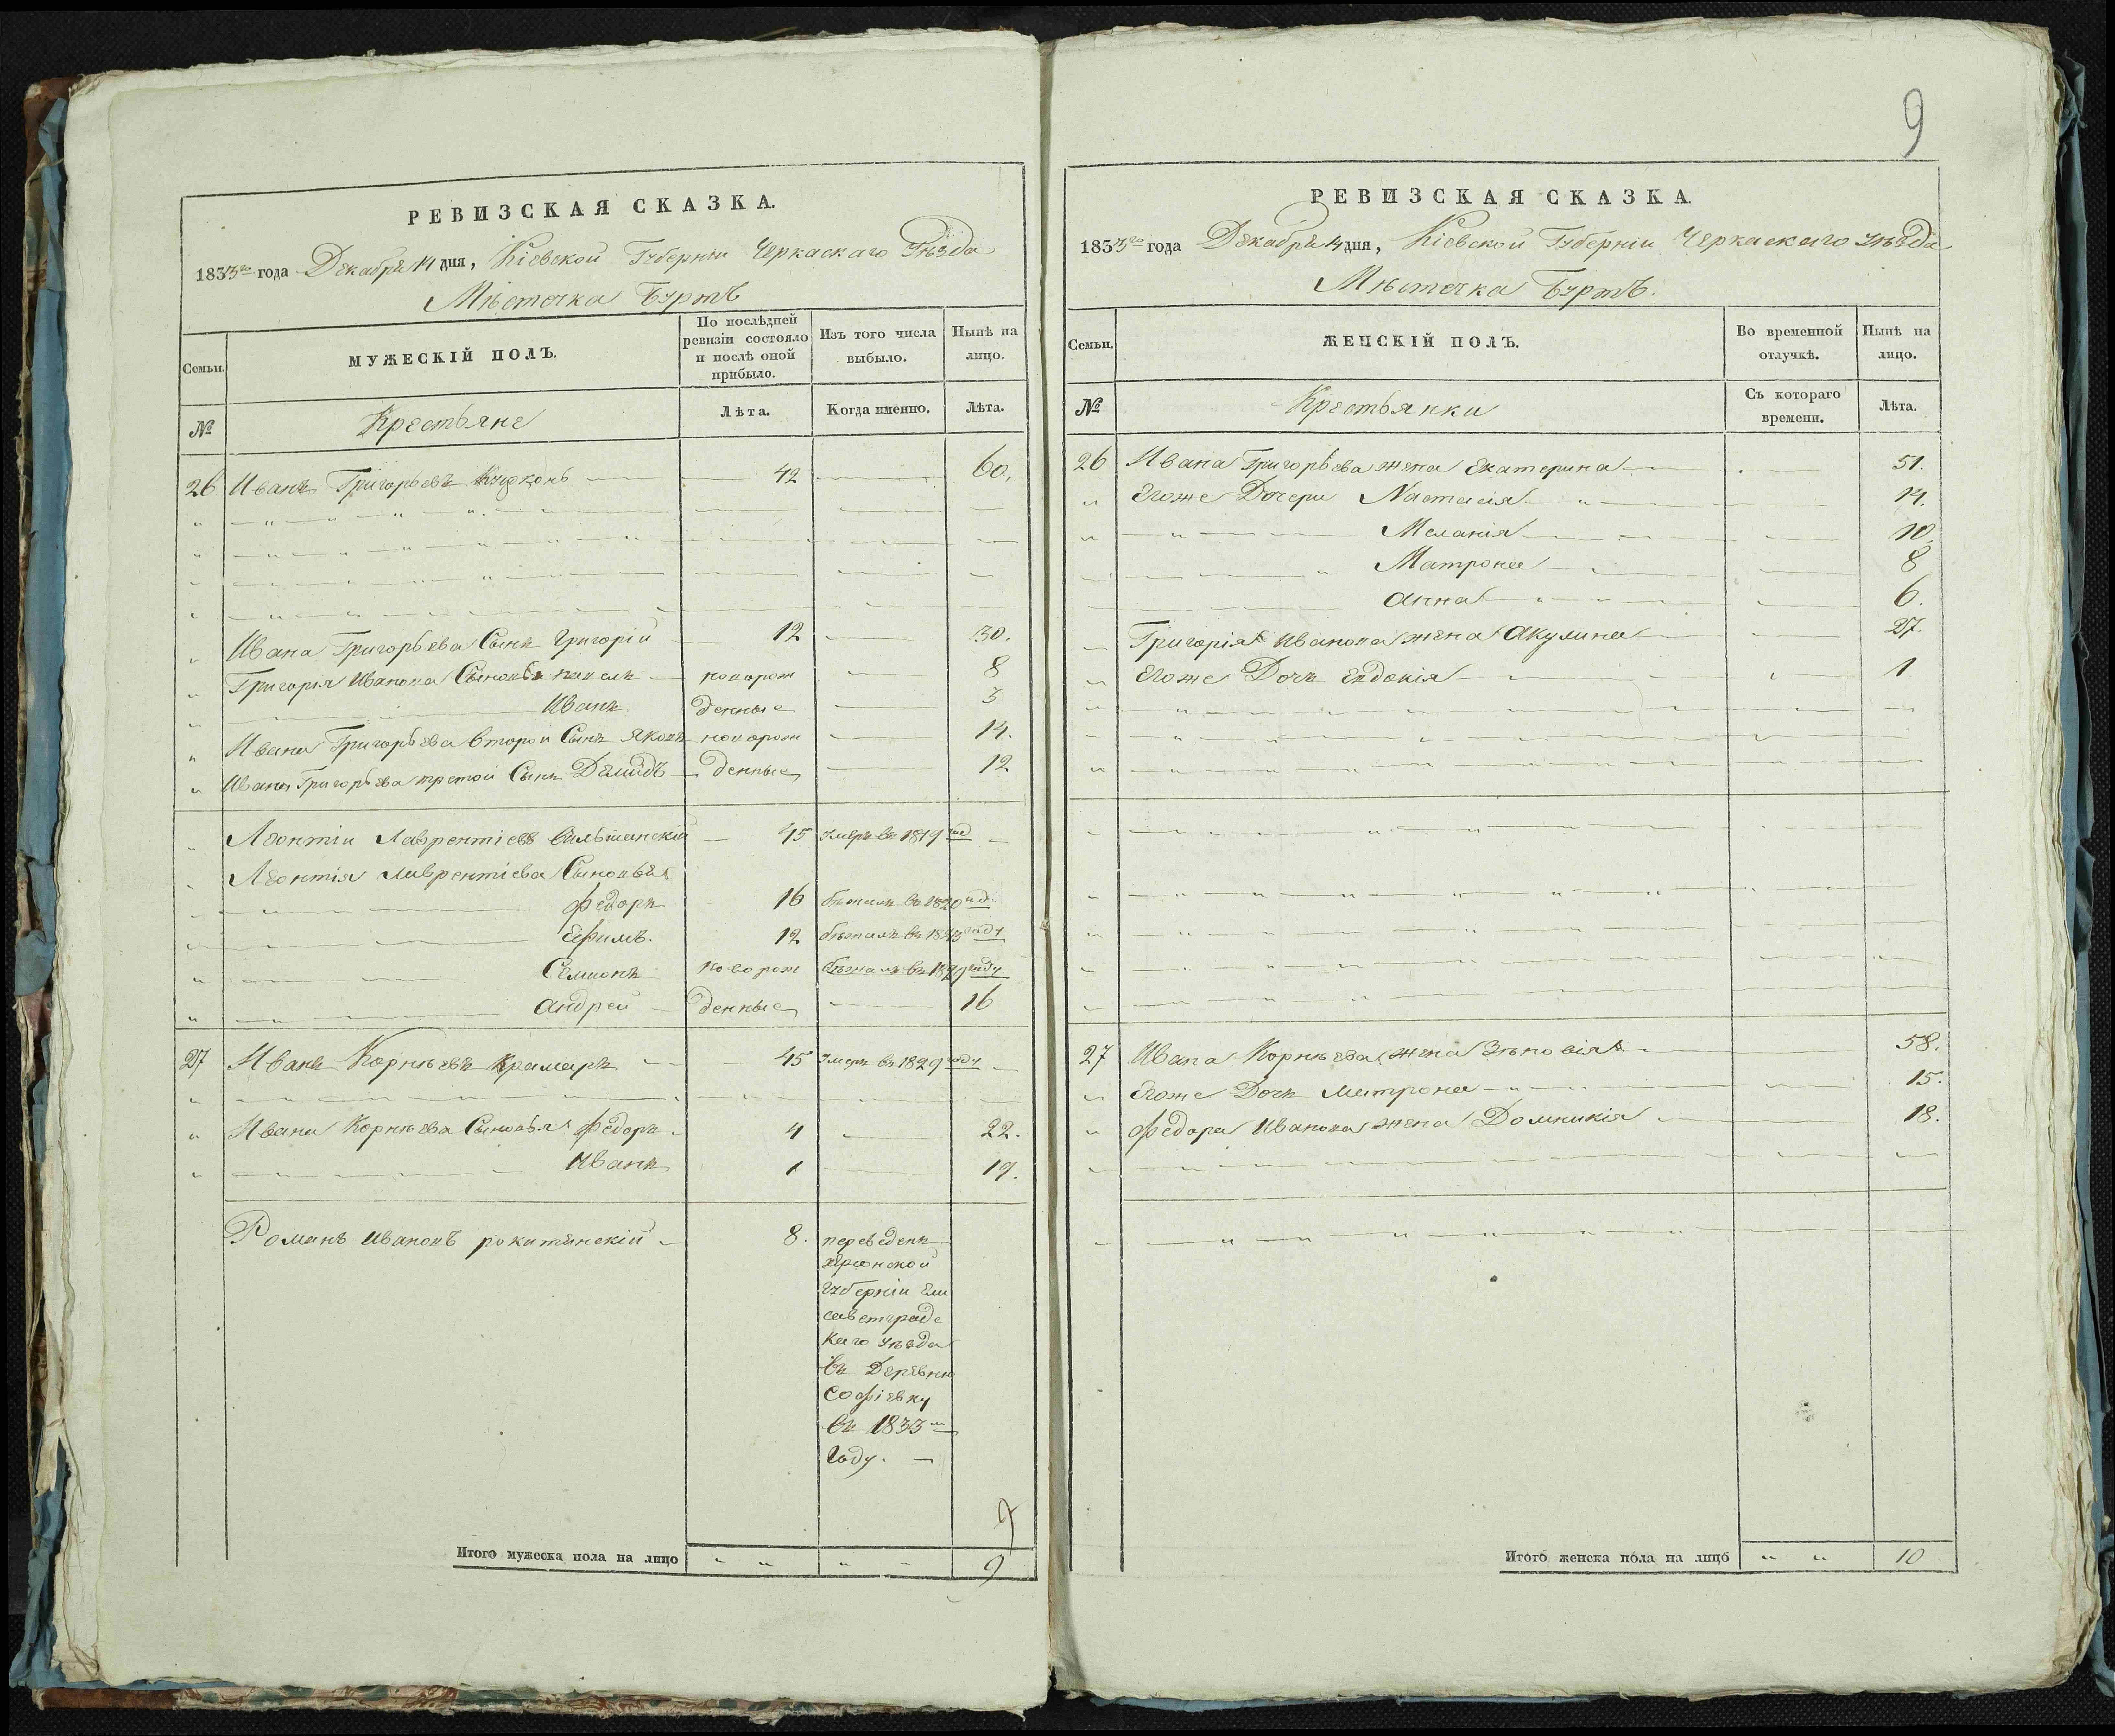 РЕВИЗСКАЯ СКАЗКА.
1833го года Декабря 14 дня, Кіевской Губерніи Черкаскаго Уѣзда
Мѣстечка Буртъ
Семьи.
МУЖЕСКІЙ ПОЛЪ.
По послѣдней ревизіи состояло и послѣ оной прибыло.
Изъ того числа выбыло.
Нынѣ на лицо.
№
Крестьяне
Лѣта.
Когда именно.
Лѣта.
26 Иванъ Григорьевъ 42 60.
Ивана Григорьева Сынъ Григорій 12 30.
Григорія Иванова Сыновья новорож 8
Иванъ денные 3
Ивана Григорьева второй Сынъ Яковъ новорож 14.
Ивана Григорьева третой Сынъ Демидъ денные 12
Леонтій Лаврентіевъ 45 умеръ въ 1819 год
Леонтія Лаврентіева Сыновья
Федоръ 16 бѣжалъ въ 1820 год.
Ефимъ. 12 бѣжалъ въ году
Семионъ новорож бѣжалъ въ 1829 году
Андрей денные 16
27 Иванъ Корнѣевъ Крамаръ 45 умеръ въ 1829 году
Ивана Корнѣева Сыновья Федоръ 4 22.
Иванъ 1 19.
Романъ Ивановъ рокитянскій 8. переведенъ
херсонской
Губерніи Ели
саветградс
каго уѣзда
въ Деревню
Софіевку
въ 1833 м
Году.
7
Итого мужеска пола на лицо 9
9
РЕВИЗСКАЯ СКАЗКА.
1833го года Декабря 14 дня, Кіевской Губерніи Черкаскаго уѣзда
Мѣстечка Буртъ.
Семьи.
ЖЕНСКІЙ ПОЛЪ.
Во временной отлучкѣ.
Нынѣ на лицо.
№
Крестьянки
Съ котораго времени.
Лѣта.
26 Ивана Григорьева жена Екатерина 51.
Егоже Дочери Настасія 14.
Меланія 10.
Матрона 8
Анна 6.
Григорія Иванова жена Акулина 27.
Егоже Дочъ Евдокія 1
27 Ивана Корнѣева жена Зѣновія 58.
Егоже Дочъ Матрона 15.
Федора Иванова жена Домникія 18.
Итого женска пола на лицо 10